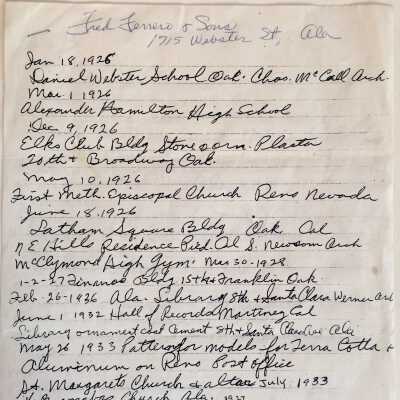 Fred Ferrero & Sons
1715 Webster St, Ala
Jan 18, 1926
Daniel Webster School Oak. Chas. McCall Arch.
Mar. 1 1926
Alexander Hamilton High School
Dec 9, 1926
Elks Club Bldg Stone & orn. Plaster
20th + Broadway Oak.
May 10, 1926
First Meth. Episcopal Church Reno Nevada
June 18, 1926
Latham Square Bldg Oak Cal
N E Hills Residence Pied. Al S. Newsom Arch
McClymond High Gym. Mar 30 - 1928
1-2-27 Financ Bldg 15th + Franklin Oak
Feb. 26 - 1926 Ala. Library 8th + Santa Clara Werner Arch
June 1 1932 Hall of Records Martinez Cal
Library ornament cast Cement 8th + Santa Clara Ave Ala
May 26 1933 Patterns for models for Terra Cotta +
Aluminum on Reno Post Office
St. Margarets Church & altar July 1933
Church Ala.